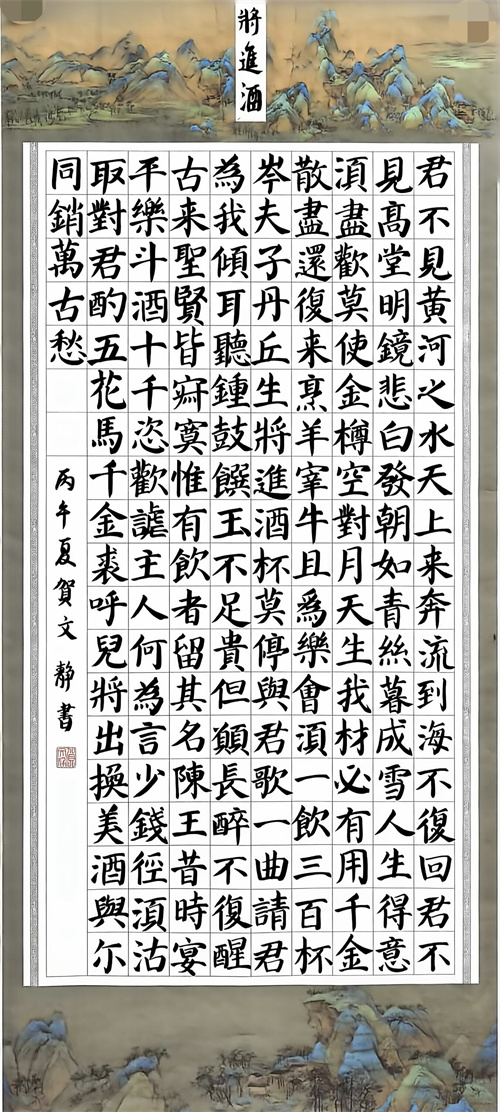 將進酒
君不見黄河之水天上来奔流到海不復回君不
見髙堂明鏡悲白發朝如青絲暮成雪人生得意
湏盡歡莫使金樽空對月天生我材必有用千金
散盡還復来烹羊宰牛且爲樂會湏一飲三百杯
岑夫子丹丘生將進酒杯莫停與君歌一曲請君
為我傾耳聽鍾鼓饌玉不足貴但願長醉不復醒
古来聖賢皆寂寞惟有飲者留其名陳王昔時宴
平樂斗酒十千恣歡謔主人何為言少錢徑湏沽
取對君酌五花馬千金裘呼兒將出換美酒與尔
同銷萬古愁
丙午夏賀文靜書